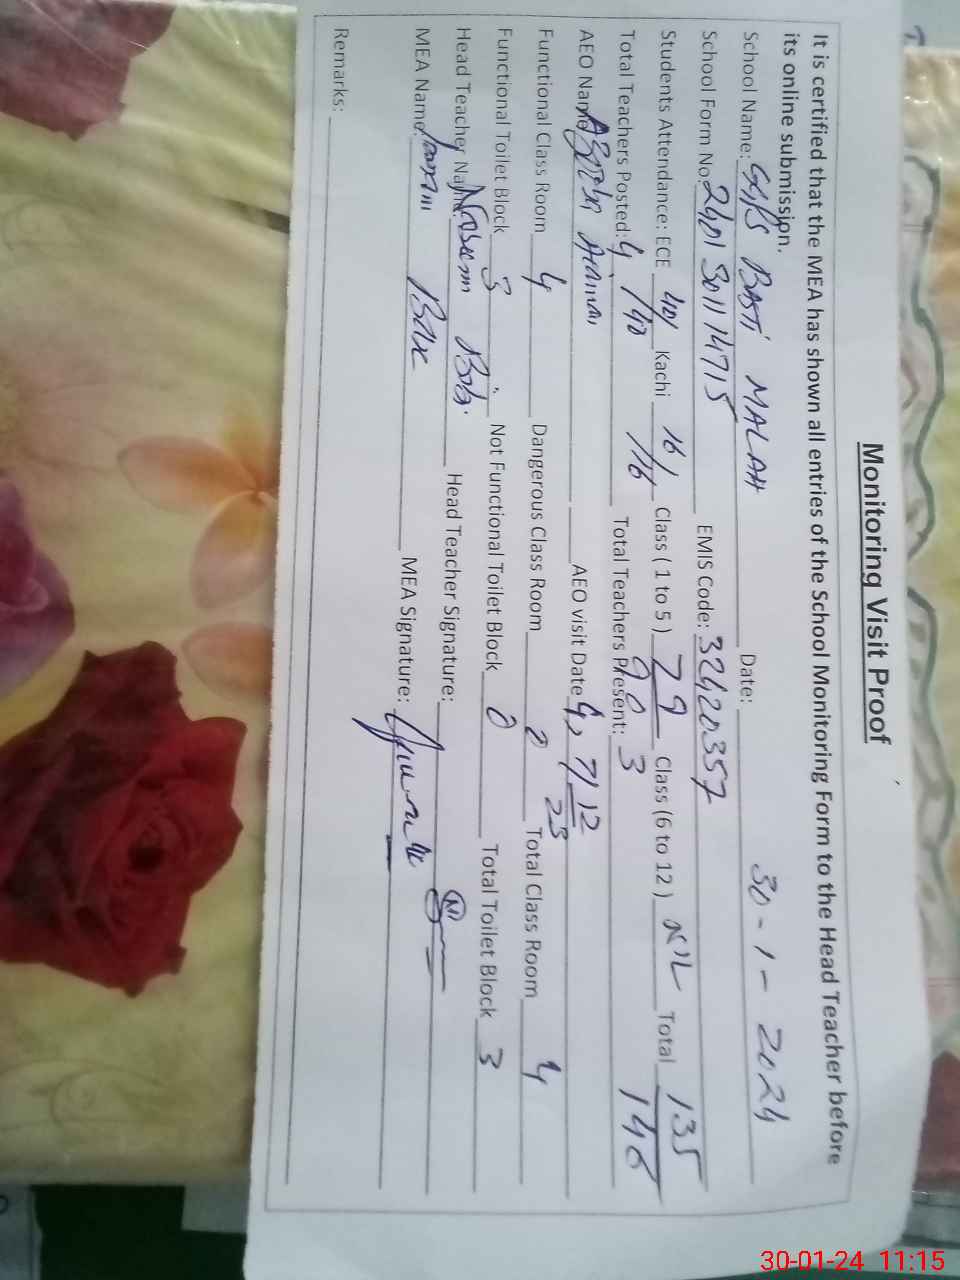 Monitoring Visit Proof
It is certified that the MEA has shown all entries of the School Monitoring Form to the Head Teacher before
its online submission.
School Name: BASTI MALAH Date: 30-1-2024
School Form No: 2401 3011 14715 EMIS Code: 32420357
Students Attendance: ECE 40/ Kachi 16/ Class ( 1 to 5 ) 79 Class (6 to 12 ) NIL Total 135
/40 /16 90 146
Total Teachers Posted: 4 Total Teachers Present: 3
AEO Name: AEO visit Date 4, 7/12
23
Functional Class Room 4 Dangerous Class Room 0 Total Class Room 4
Functional Toilet Block 3 Not Functional Toilet Block 0 Total Toilet Block 3
Head Teacher Name: Naseem Bibi Head Teacher Signature:
MEA Name: Bux MEA Signature:
Remarks:
30-01-24 11:15